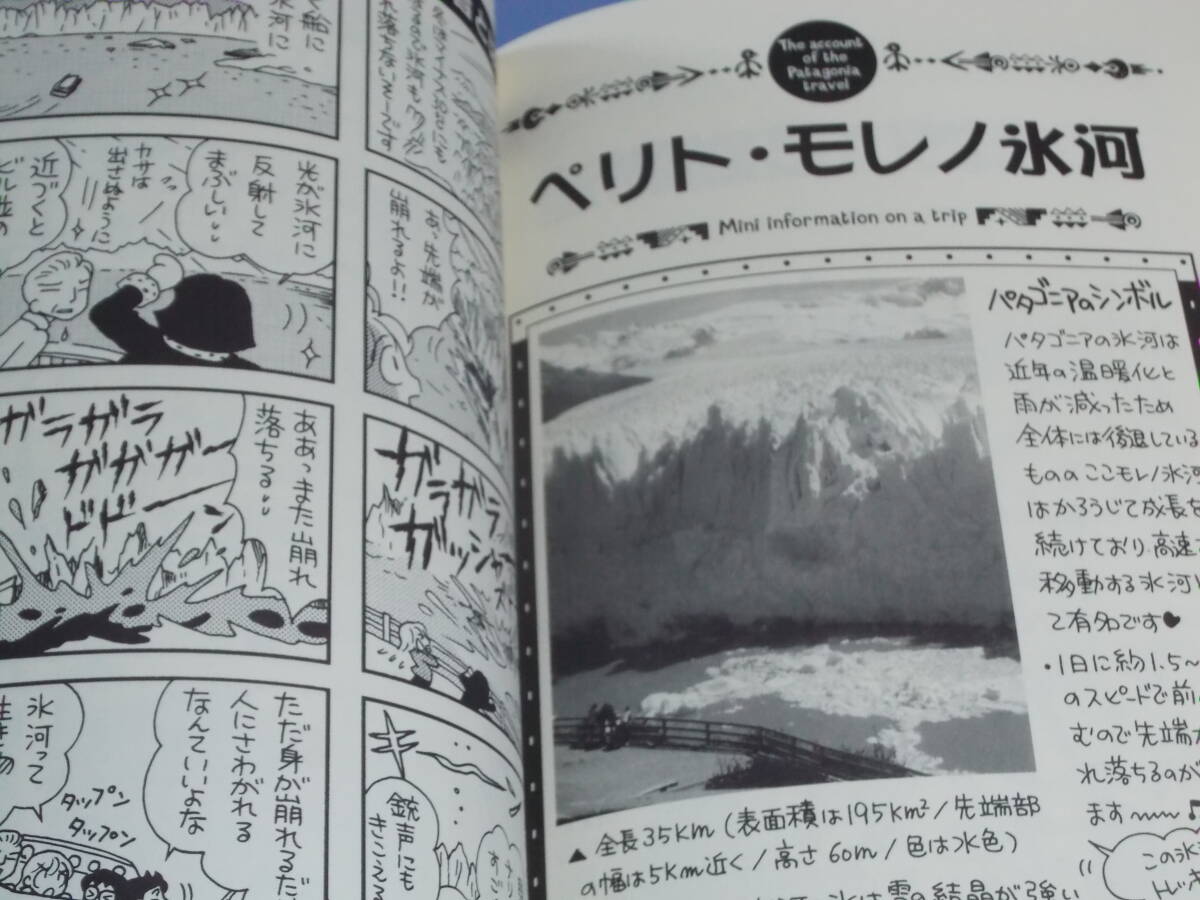 く船に
氷河に
光が氷河に
反射して
まぶしい
カサは
出さぬように
近づくと
ビル並の
あっ先端が
崩れるよ!!
ああっまた崩れ
落ちる
ガラガラ
ガガガー
ドドーン
ガラガラ
ガッシャーン
ただ身が崩れるだ
人にさわがれる
なんていいよな
氷河って
生きもの
タップン
タップン
銃声にも
きこえる
The account
of the
Patagonia
travel
ペリト・モレノ氷河
Mini information on a trip
パタゴニアのシンボル
パタゴニアの氷河は
近年の温暖化と
雨が減ったため
全体には後退している
もののここモレノ氷河
はかろうじて成長を
続けており高速で
移動する氷河と
て有名です♥
・1日に約1.5〜
のスピードで前
むので先端が
れ落ちるのが
ます〜〜♪
▲全長35km(表面積は195km²/先端部
の幅は5km近く/高さ60m/色は水色)
氷は雪の結晶が強い
この氷
トレッキ